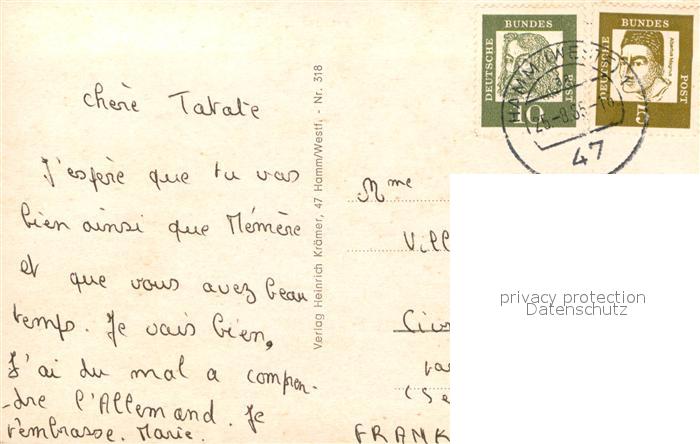 chère Tatate
J'espère que tu vas
bien ainsi que Mémère
et que vous avez beau
temps. Je vais bien,
J'ai du mal a compren-
-dre l'Allemand. Je
t'embrasse. Marie.
Verlag Heinrich Krämer, 47 Hamm/Westf. - Nr. 318
DEUTSCHE BUNDES POST
10
DEUTSCHE BUNDES POST
15
HAMM (WESTF)
25-8.65-18
47
Mme
Vill
FRANK
privacy protection
Datenschutz